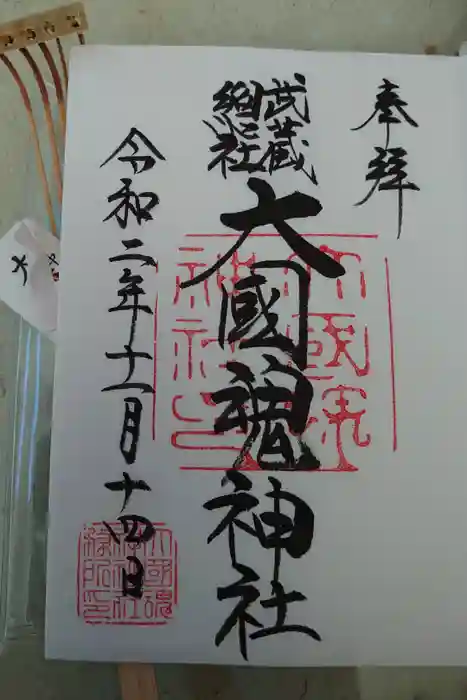 奉拝
武蔵
総社
大國魂神社
令和二年十一月十四日
大國魂
神社之印